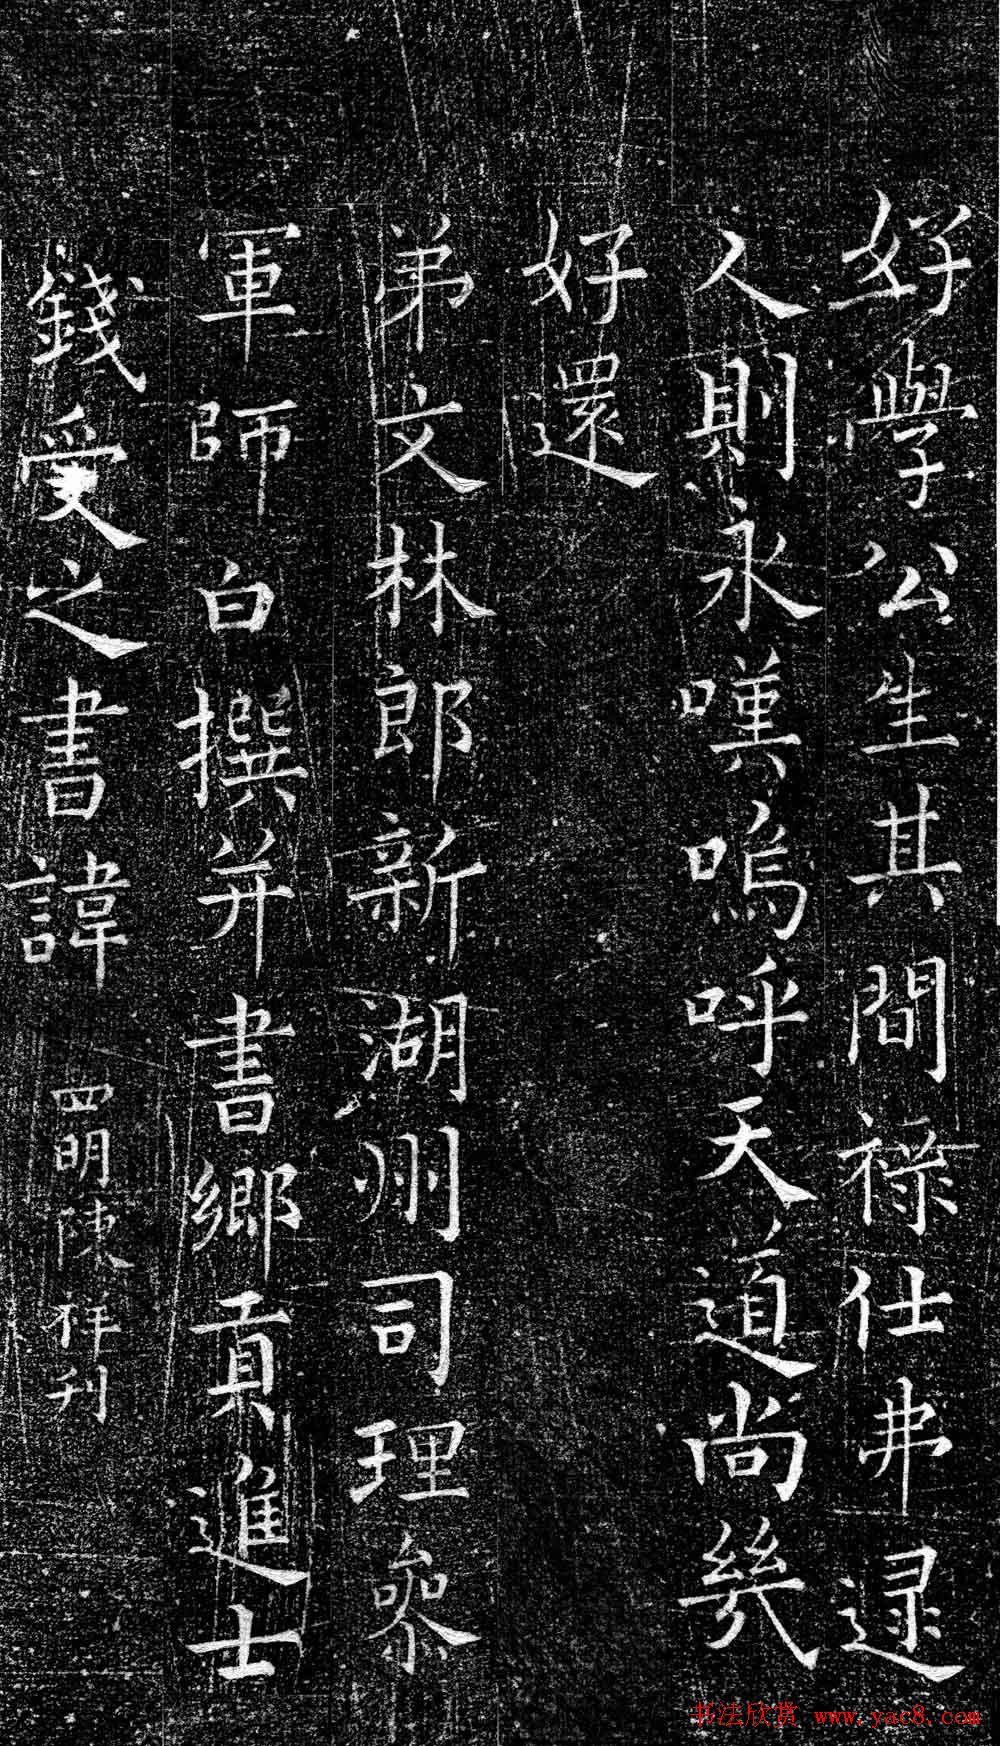 好學公生其間祿仕弗逮
人則永嘆嗚呼天道尚幾
好還
弟文林郎新湖州司理參
軍師白撰并書鄉貢進士
錢受之書諱
四明陳祥刊
书法欣赏 www.yac8.com